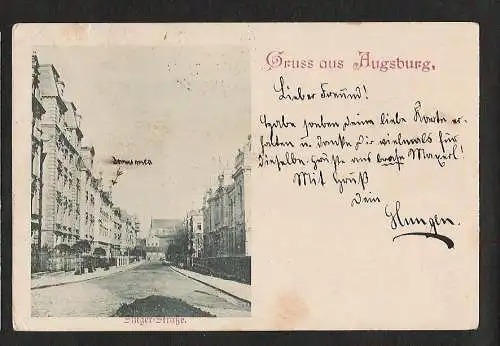 Gruss aus Augsburg.
Lieber Freund!
Habe soeben Deine liebe Karte er-
halten u. danke Dir vielmals für
dieselbe. Grüße aus
Mit Gruß
Dein